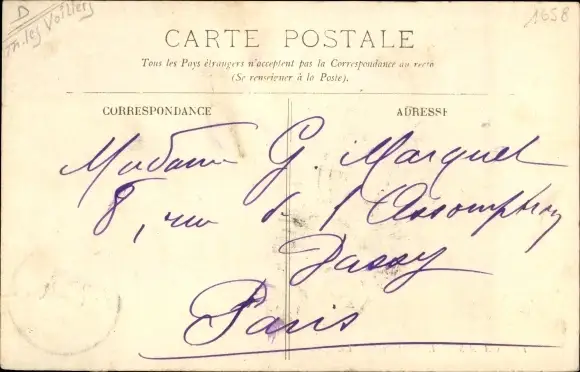 D
m. les Voiliers
1658
CARTE POSTALE
Tous les Pays étrangers n'acceptent pas la Correspondance au recto
(Se renseigner à la Poste).
CORRESPONDANCE
ADRESSE
Madame G Marquet
8, rue de l'Assomption
Passy
Paris